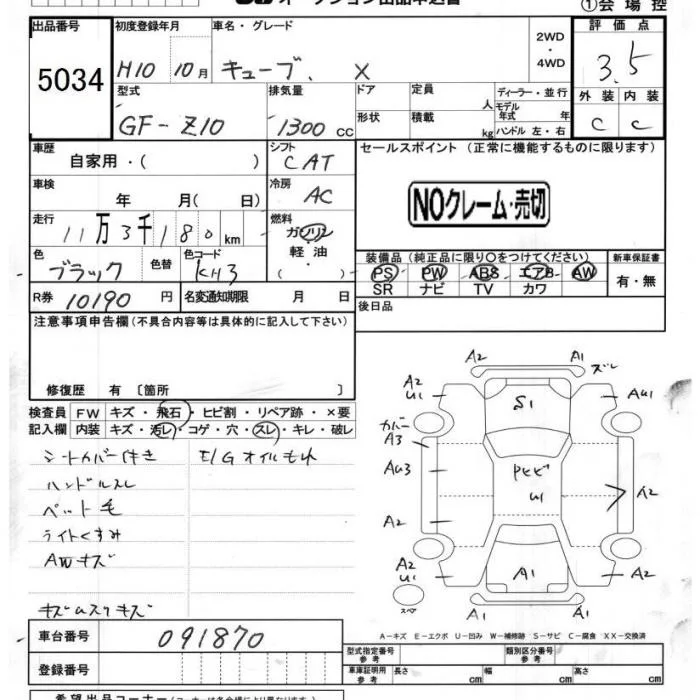 オークション出品申込書
①会場控
出品番号 初度登録年月 車名・グレード 2WD・4WD 評価点
5034 H10 10月 キューブ. X 3.5
型式 排気量 ドア 定員 人 ディーラー・並行 外装 内装
GF-Z10 1300 CC 形状 積載 kg モデル年式 年 C C
ハンドル 左・右
車歴 自家用・( ) シフト CAT セールスポイント(正常に機能するものに限ります)
車検 年 月( 日) 冷房 AC NOクレーム・売切
走行 11万3千180km 燃料 ガソリン 軽油 ( )
色 ブラック 色替 色コード KH3 装備品(純正品に限り○をつけてください) 新車保証書
PS PW ABS エアB AW 有・無
SR ナビ TV カワ
R券 10190円 名変通知期限 月 日 後日品
注意事項申告欄(不具合内容等は具体的に記入して下さい)
修復歴 有 〔箇所 〕
検査員 FW キズ・飛石・ヒビ割・リペア跡・×要
記入欄 内装 キズ・汚レ・コゲ・穴・スレ・キレ・破レ
シートカバー付き E/Gオイルもれ
ハンドルスレ
ペット毛
ライトくすみ
AWキズ
A2 A1 ズレ
A2 U1 S1 AU1
カバー A3
AU3 Pヒビ U1 A2
A2
A2 U1 A1 A2
スペア A1 A1
A-キズ E-エクボ U-凹み W-補修跡 S-サビ C-腐食 XX-交換済
車台番号 091870
型式指定番号 参考 類別区分番号 参考
登録番号 車庫証明用 参考 長さ cm 幅 cm 高さ cm
希望出品コーナー